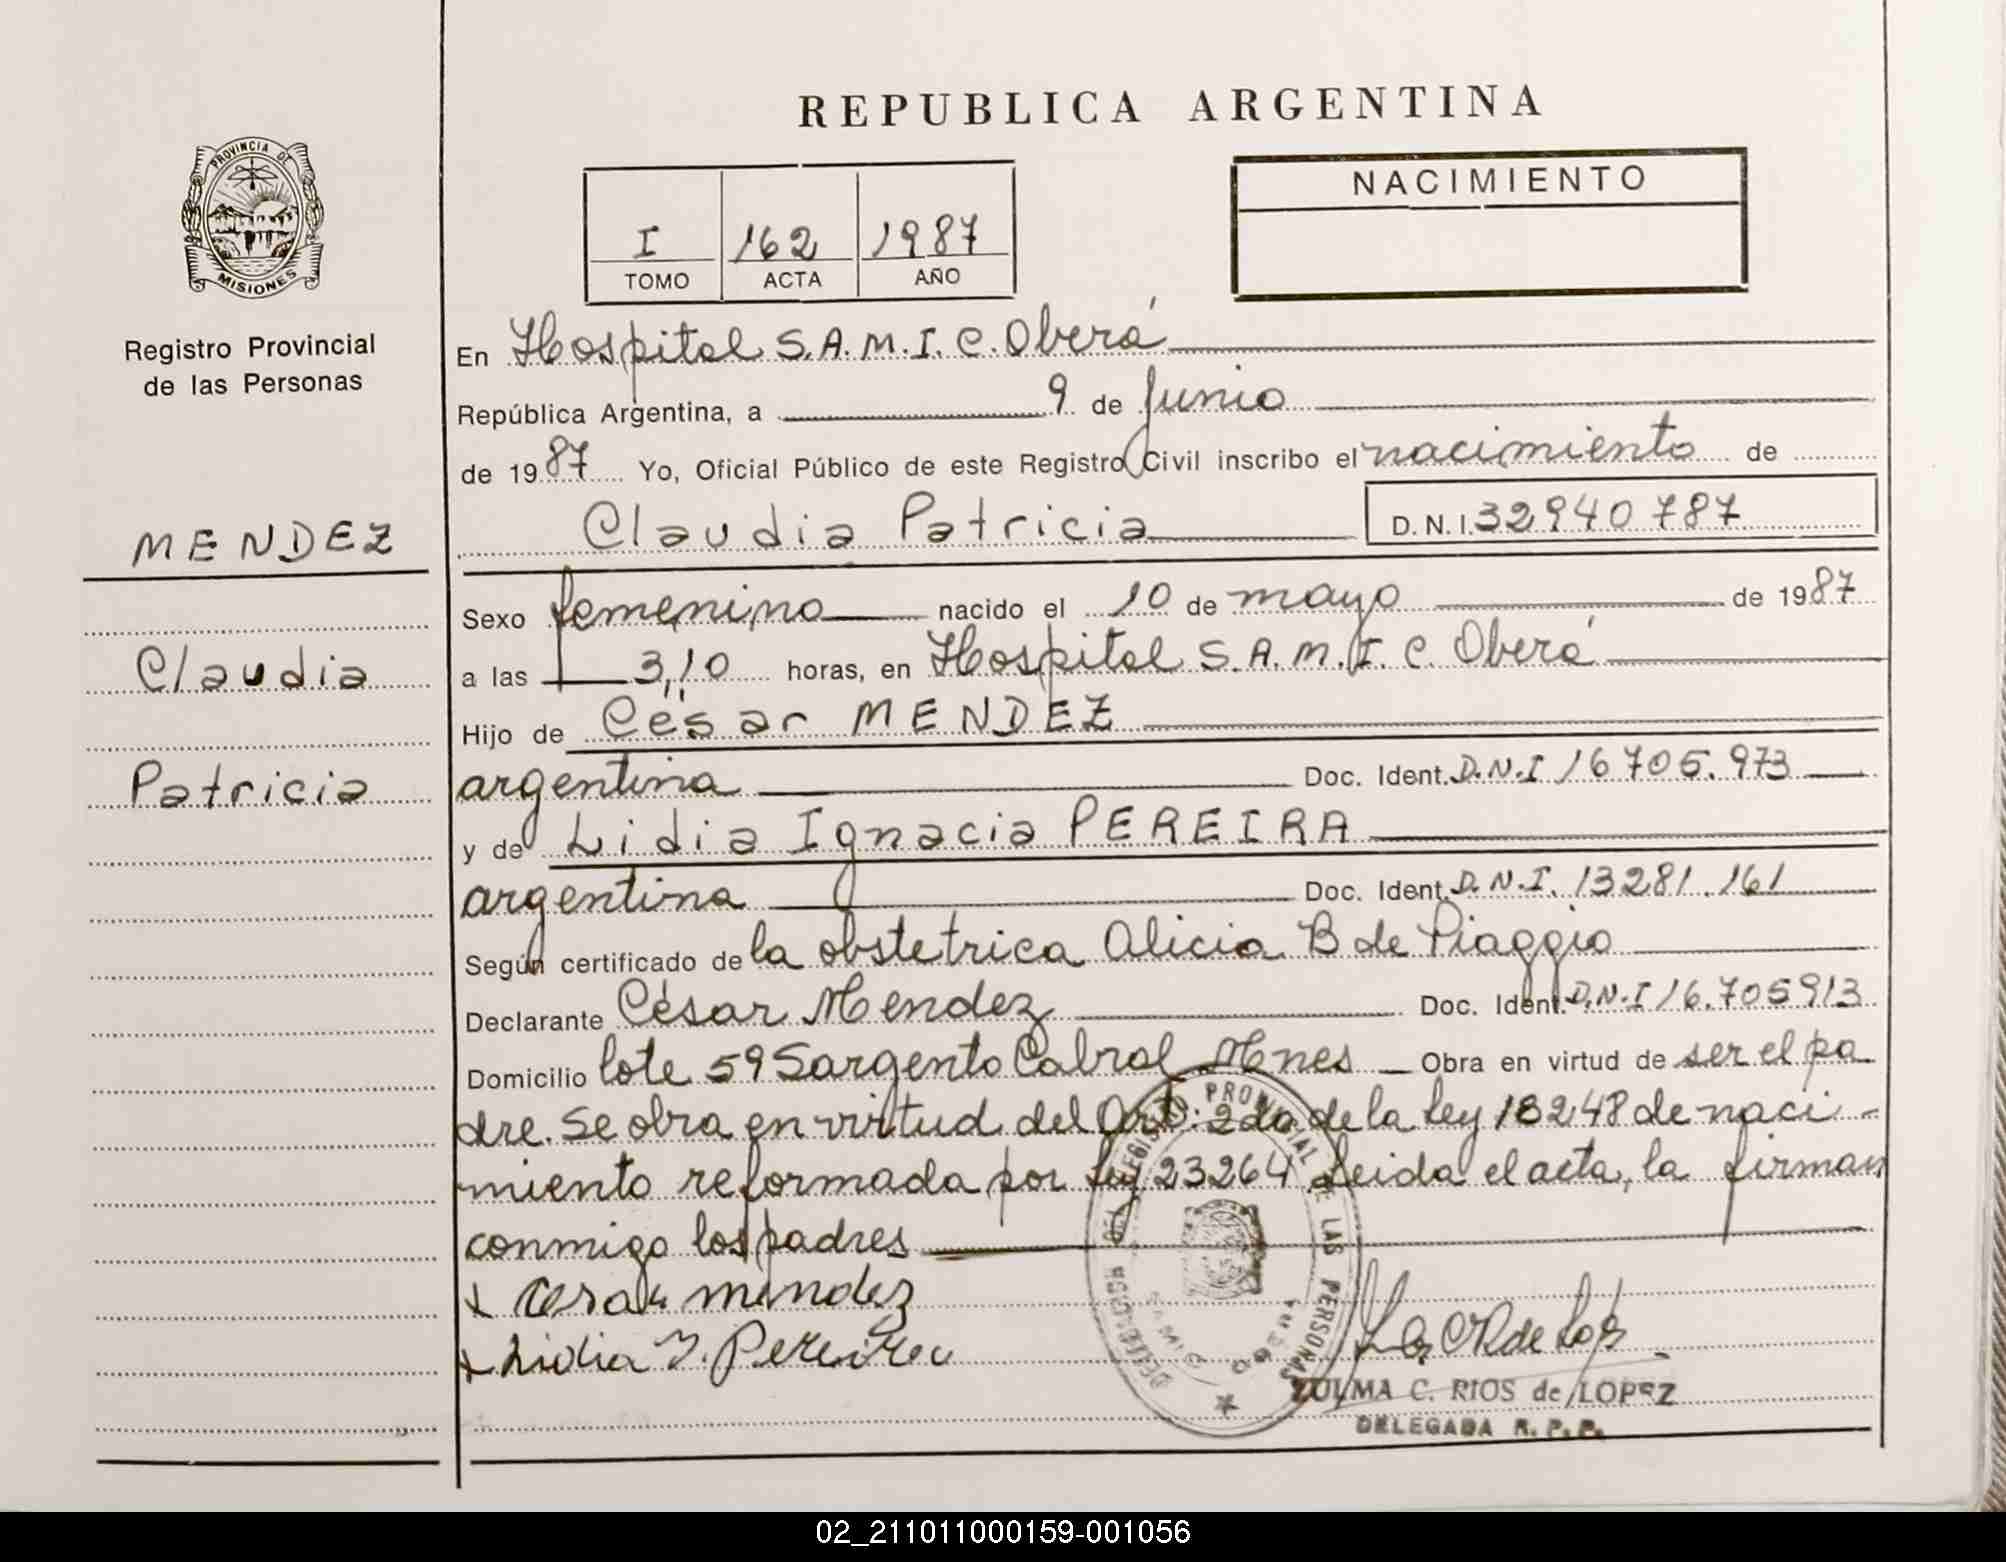 REPUBLICA ARGENTINA
PROVINCIA DE
MISIONES
Registro Provincial
de las Personas
I 162 1987
TOMO ACTA AÑO
NACIMIENTO
En Hospital S.A.M.I.C. Oberá
República Argentina, a 9 de Junio
de 1987 Yo, Oficial Público de este Registro Civil inscribo el nacimiento de
MENDEZ
Claudia Patricia D.N.I. 32940787
Sexo femenino nacido el 10 de mayo de 1987
Claudia
a las 3,10 horas, en Hospital S.A.M.I.C. Oberá
Hijo de César MENDEZ
Patricia
argentina Doc. Ident. D.N.I 16705.973
y de Lidia Ignacia PEREIRA
argentina Doc. Ident. D.N.I. 13281.161
Según certificado de la obstetrica Alicia B de Piaggio
Declarante César Mendez Doc. Ident. D.N.I 16.705913
Domicilio lote 59 Sargento Cabral Mnes Obra en virtud de ser el pa
dre. Se obra en virtud del Art. 2do de la ley 18248 de naci-
miento reformada por ley 23264 Leida el acta, la firman
conmigo los padres
x Cesar mendez
x Lidia I. Pereira
REGISTRO PROVINCIAL DE LAS PERSONAS
ZULMA C. RIOS de LOPEZ
DELEGADA R. P. P.
02_211011000159-001056